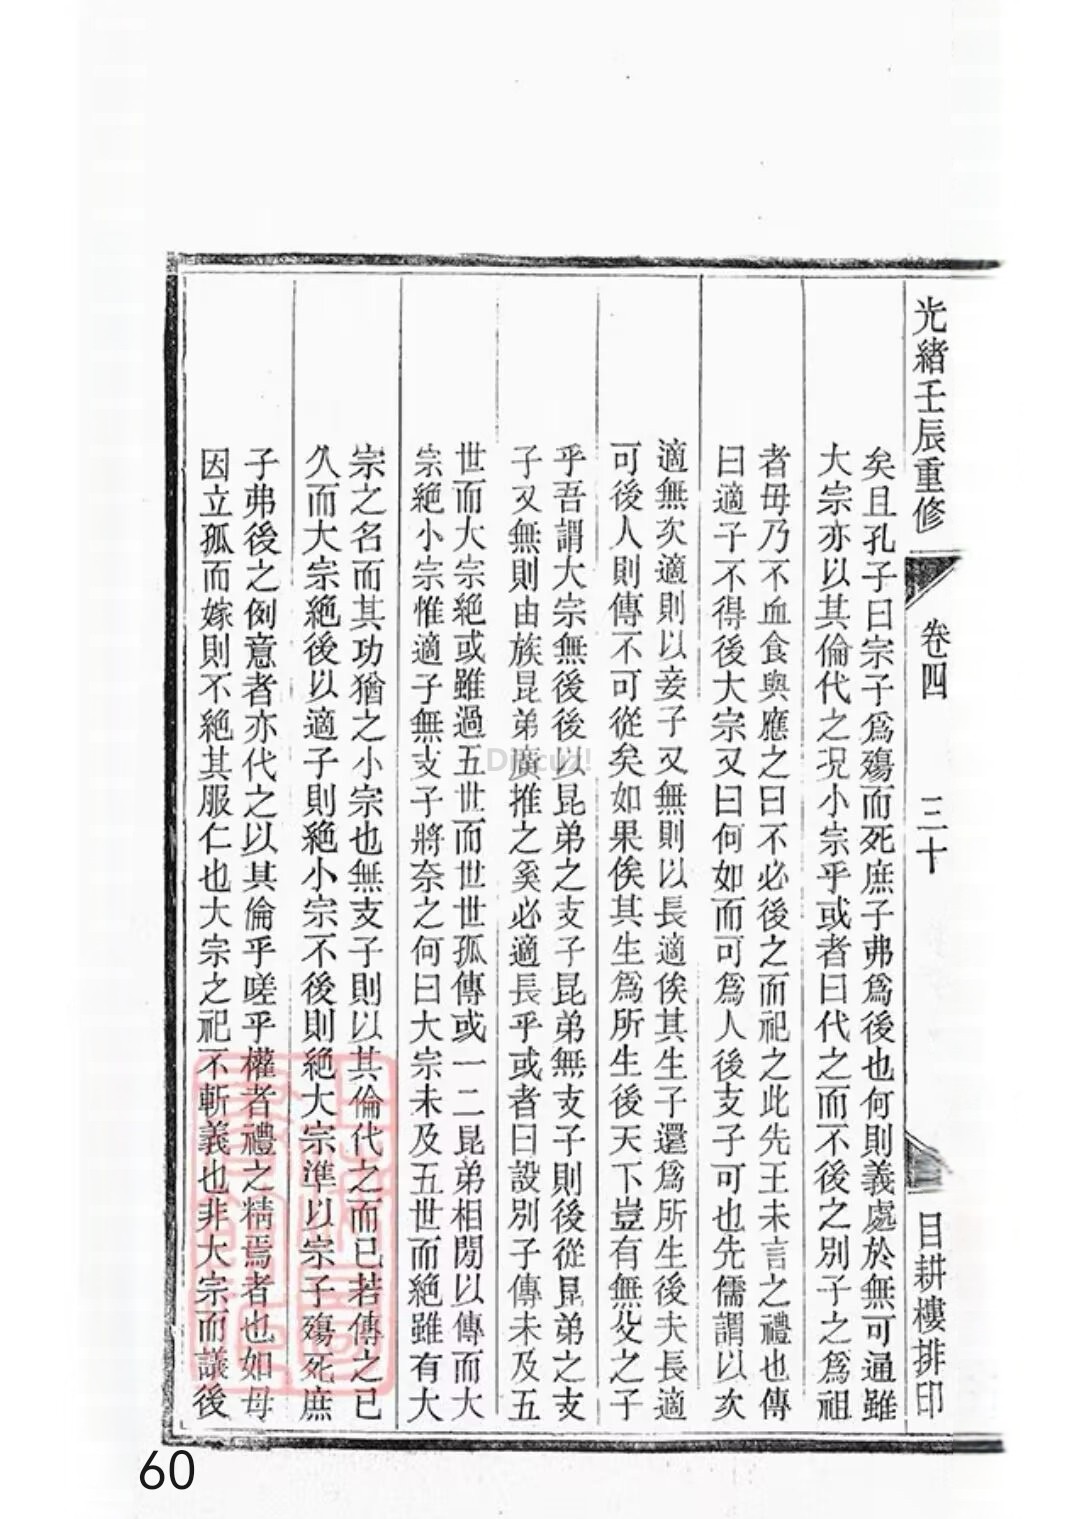 光緒壬辰重修
卷四
三十
目耕樓排印
矣且孔子曰宗子爲殤而死庶子弗爲後也何則義處於無可通雖
大宗亦以其倫代之况小宗乎或者曰代之而不後之别子之爲祖
者毋乃不血食與應之曰不必後之而祀之此先王未言之禮也傳
曰適子不得後大宗又曰何如而可爲人後支子可也先儒謂以次
適無次適則以妾子又無則以長適俟其生子還爲所生後夫長適
可後人則傳不可從矣如果俟其生爲所生後天下豈有無父之子
乎吾謂大宗無後後以昆弟之支子昆弟無支子則後從昆弟之支
子又無則由族昆弟廣推之奚必適長乎或者曰設别子傳未及五
世而大宗絶或雖過五世而世世孤傳或一二昆弟相閒以傳而大
宗絶小宗惟適子無支子將奈之何曰大宗未及五世而絶雖有大
宗之名而其功猶之小宗也無支子則以其倫代之而已若傳之已
久而大宗絶後以適子則絶小宗不後則絶大宗準以宗子殤死庶
子弗後之例意者亦代之以其倫乎嗟乎權者禮之精焉者也如母
因立孤而嫁則不絶其服仁也大宗之祀不斬義也非大宗而議後
Discuz!
60